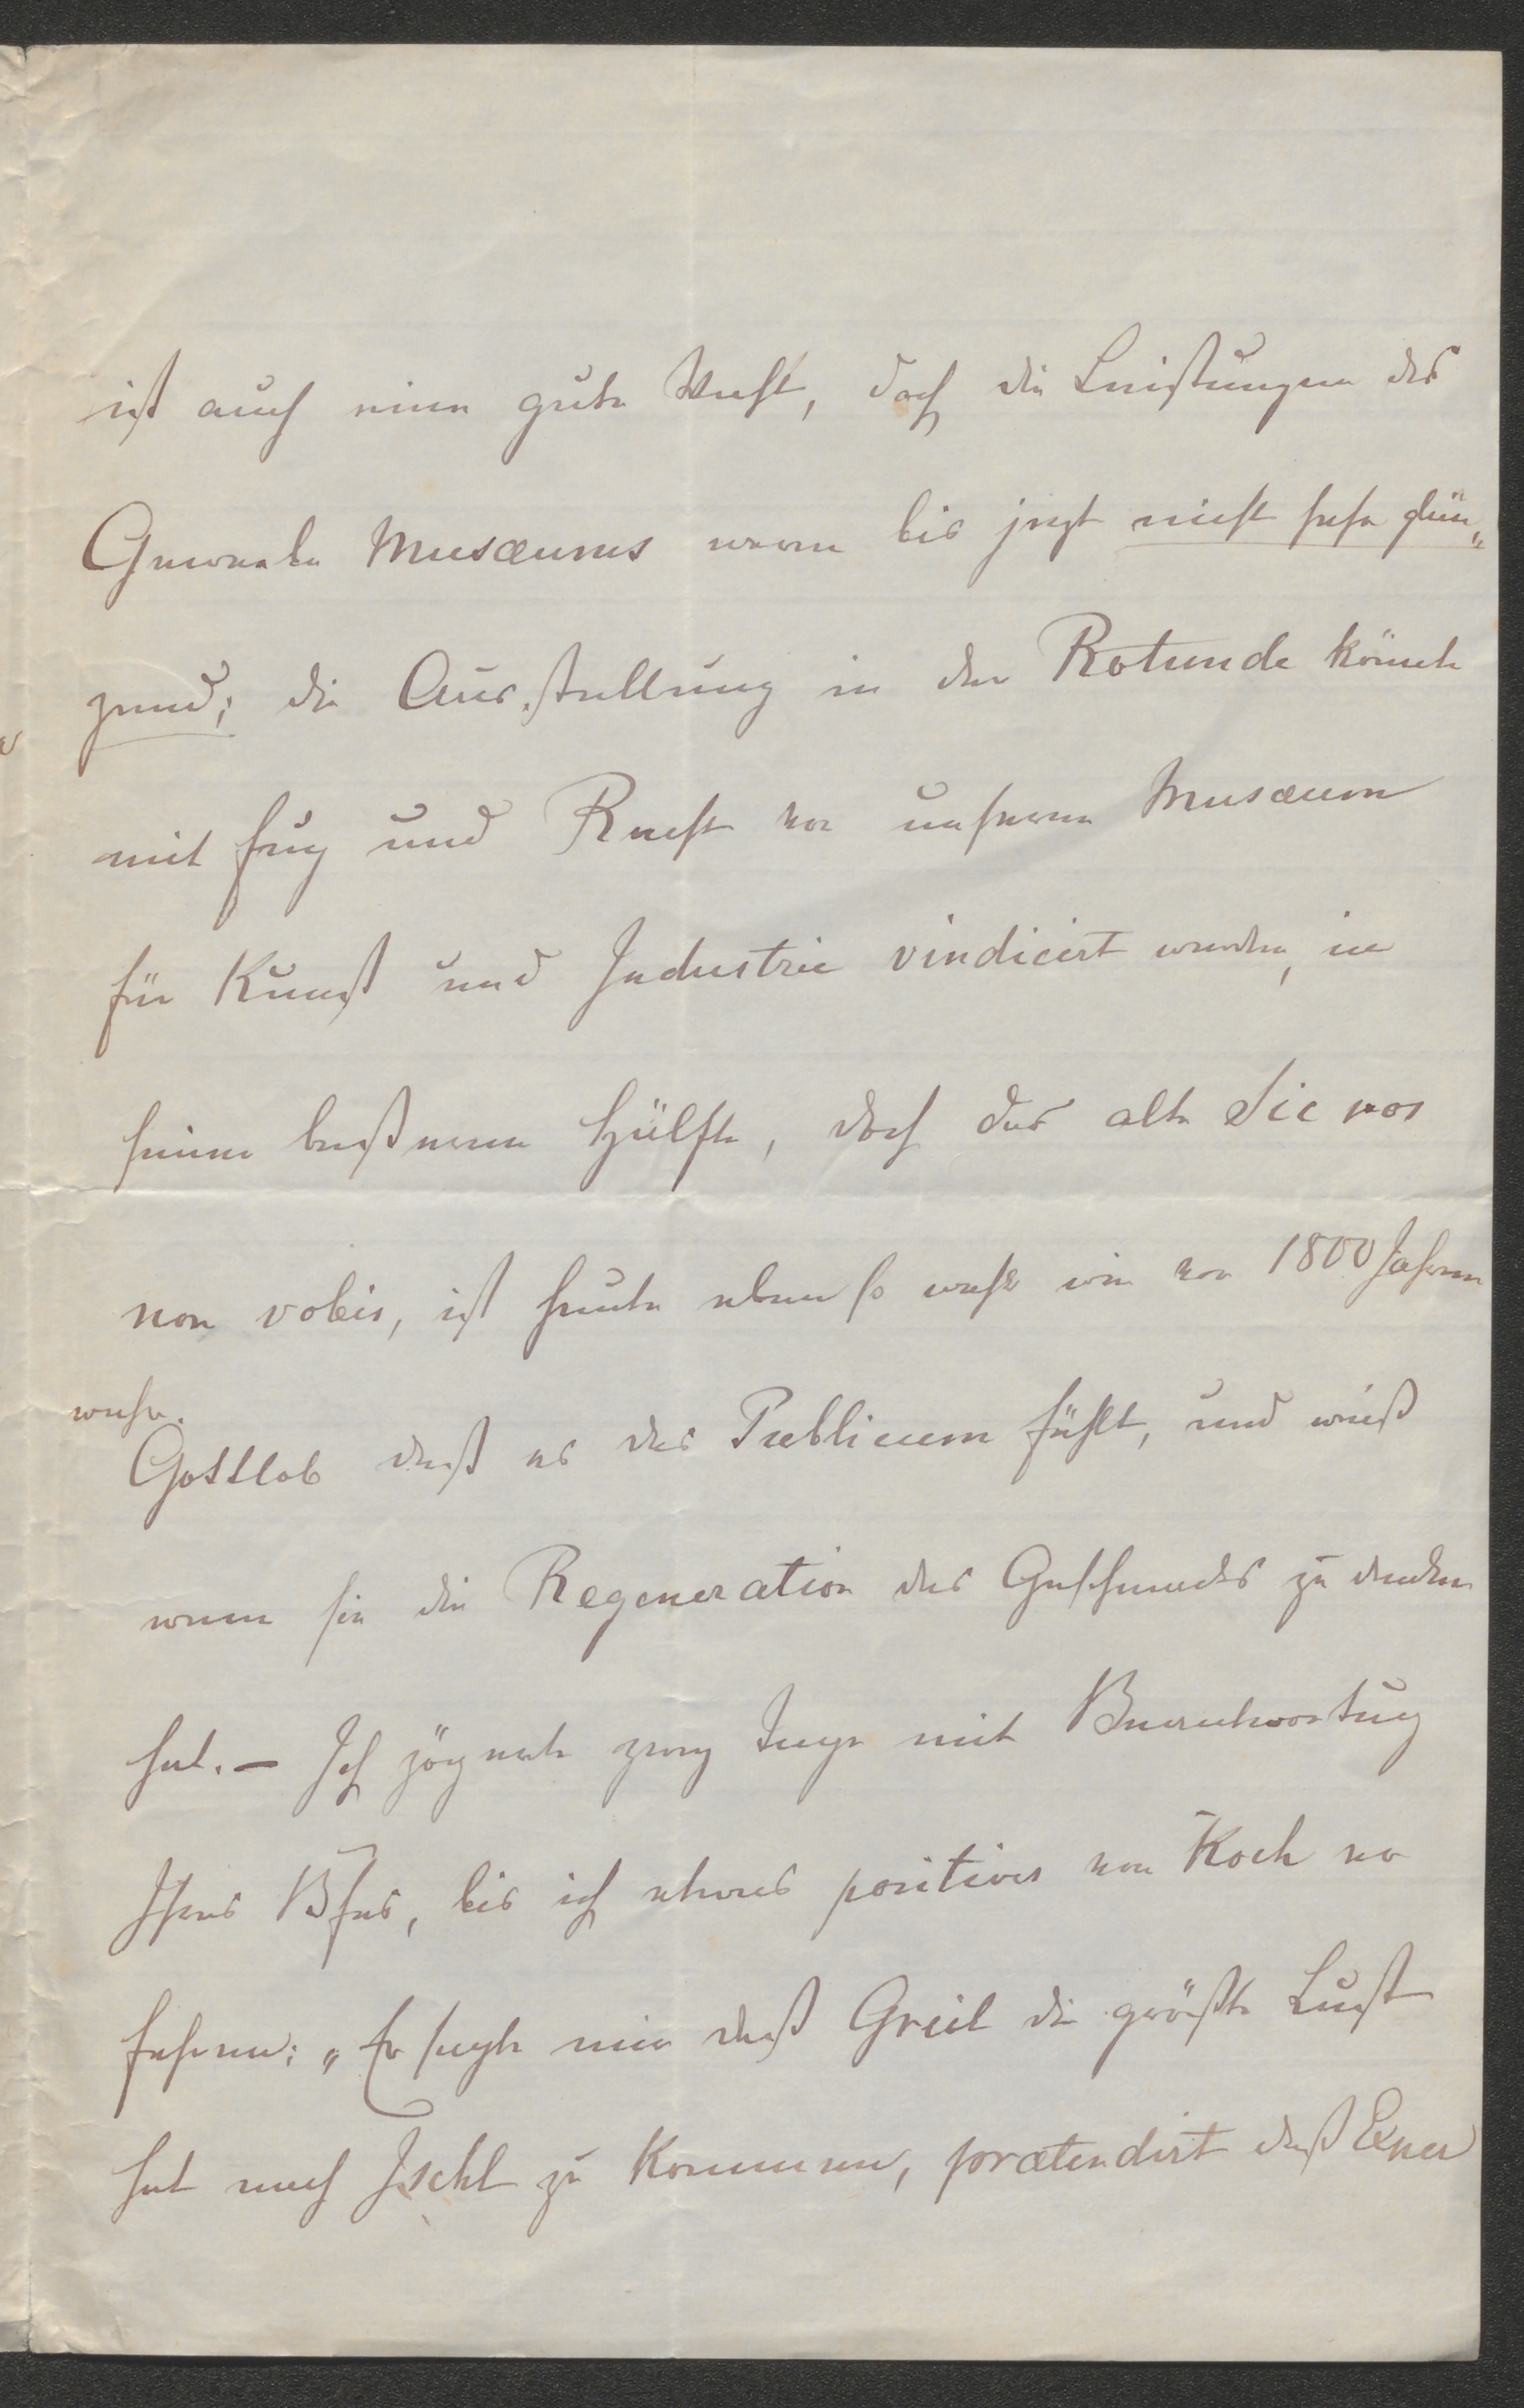 ist auch eine gute Wahl, doch die Leistungen des
Gewerbe Musæums waren bis jezt nicht sehr glän„
zend; die Ausstellung in der Rotunde könnte
mit Fug und Recht von unserem Musæum
für Kunst und Industrie vindicirt werden, in
seiner besseren Hälfte, doch das alte Sic vos
non vobis, ist heute eben so wahr wie vor 1800 Jahren
wahr.
Gottlob daß es das Publicum fühlt, und weiß
wem sie die Regeneration des Geschmacks zu danken
hat. – Ich zögerte zwey Tage mit Beantwortung
Ihres Bfes, bis ich etwas positives von Koch er
fahren; „Er sagte mir daß Greil die größte Lust
hat nach Ischl zu kommen, prætendirt daß Exner